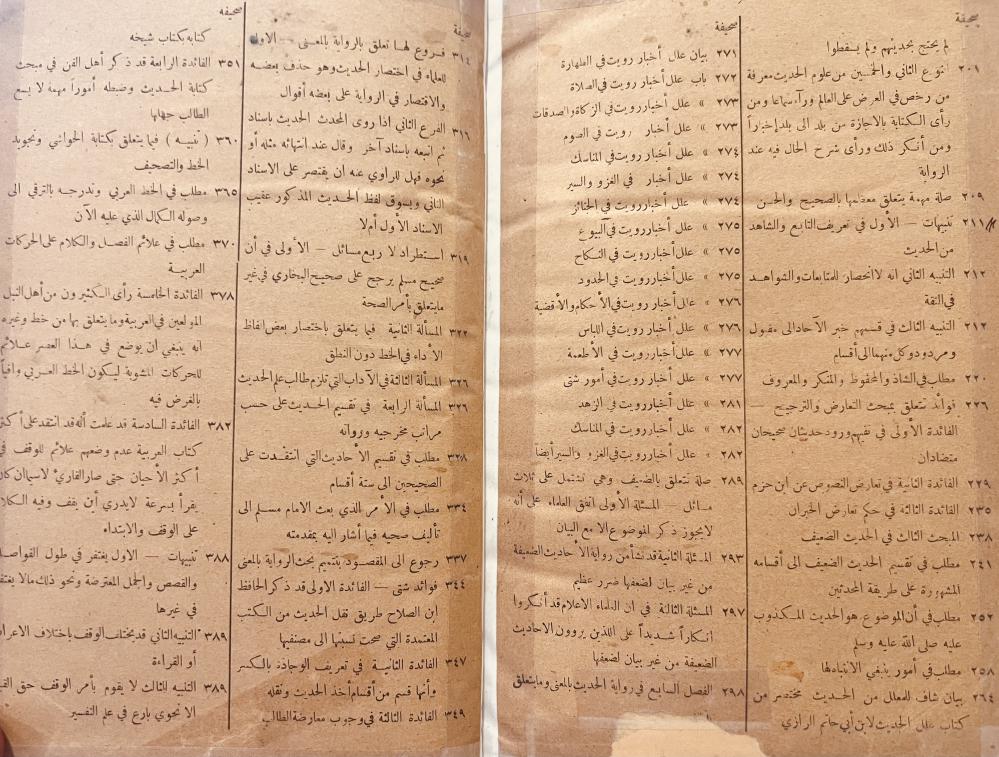 صحيفة
لم يحتج بحديثهم ولم يسقطوا
٢٠١ النوع الثاني والخمسين من علوم الحديث معرفة
من رخص في العرض على العالم ورآه سماعا ومن
رأى الكتابة بالاجازة من بلد الى بلد إخباراً
ومن أنكر ذلك ورأى شرح الحال فيه عند
الرواية
٢٠٩ صلة مهمة يتعلق معظمها بالصحيح والحسن
٢١١ تنبيهات — الأول في تعريف التابع والشاهد
من الحديث
٢١٢ التنبيه الثاني انه لا انحصار للمتابعات والشواهد
في الثقة
٢١٢ التنبيه الثالث في قسمهم خبر الآحاد الى مقبول
ومردود وكل منهما الى أقسام
٢٢٠ مطلب في الشاذ والمحفوظ والمنكر والمعروف
٢٢٦ فوائد تتعلق بمبحث التعارض والترجيح —
الفائدة الأولى في نفيهم ورود حديثان صحيحان
متضادان
٢٢٩ الفائدة الثانية في تعارض النصوص عن ابن حزم
٢٣٥ الفائدة الثالثة في حكم تعارض الخبران
٢٣٨ المبحث الثاني في الحديث الضعيف
٢٤١ مطلب في تقسيم الحديث الضعيف الى أقسامه
المشهورة على طريقة المحدثين
٢٥٢ مطلب في أن الموضوع هو الحديث المكذوب
عليه صلى الله عليه وسلم
٢٥٨ مطلب في أمور ينبغي الانتباه لها
٢٦٤ بيان شاف للمعلل من الحديث مختصر من
كتاب علل الحديث لابن أبي حاتم الرازي
صحيفة
٢٧١ بيان علل أخبار رويت في الطهارة
٢٧٢ باب علل أخبار رويت في الصلاة
٢٧٣ » علل أخبار رويت في الزكاة والصدقات
٢٧٣ » علل أخبار رويت في الصوم
٢٧٤ » علل أخبار رويت في المناسك
٢٧٤ » علل أخبار في الغزو والسير
٢٧٤ » علل أخبار رويت في الجنائز
٢٧٥ » علل أخبار رويت في البيوع
٢٧٥ » علل أخبار رويت في النكاح
٢٧٥ » علل أخبار رويت في الحدود
٢٧٦ » علل أخبار رويت في الأحكام والأقضية
٢٧٦ » علل أخبار رويت في اللباس
٢٧٧ » علل أخبار رويت في الأطعمة
٢٧٧ » علل أخبار رويت في أمور شتى
٢٨١ » علل أخبار رويت في الزهد
٢٨٢ » علل أخبار رويت في المناسك
٢٨٢ » علل أخبار رويت في الغزو والسير أيضا
٢٨٩ صلة تتعلق بالضعيف وهي تشتمل على ثلاث
مسائل — المسئلة الأولى اتفق العلماء على أنه
لا يجوز ذكر الموضوع الا مع البيان
٢٩٣ المسئلة الثانية قد نشأ من رواية الأحاديث الضعيفة
من غير بيان لضعفها ضرر عظيم
٢٩٧ المسئلة الثالثة في ان العلماء الاعلام قد أنكروا
انكاراً شديداً على اللذين يروون الاحاديث
الضعيفة من غير بيان لضعفها
٢٩٨ الفصل السابع في رواية الحديث بالمعنى وما يتعلق
صحيفة
٣١٤ فروع لها تعلق بالرواية بالمعنى — الاول
للعلماء في اختصار الحديث وهو حذف بعضه
والاقتصار في الرواية على بعضه أقوال
٣١٦ الفرع الثاني اذا روى المحدث الحديث باسناد
ثم اتبعه باسناد آخر وقال عند انتهائه مثله أو
نحوه فهل للراوي عنه ان يقتصر على الاسناد
الثاني ويسوق لفظ الحديث المذكور عقيب
الاسناد الأول أم لا
٣١٩ استطراد لاربع مسائل — الأولى في أن
صحيح مسلم يرجح على صحيح البخاري في غير
ما يتعلق بأمر الصحة
٣٢٢ المسألة الثانية فيما يتعلق باختصار بعض الفاظ
الأداء في الخط دون النطق
٣٢٦ المسألة الثالثة في الآداب التي تلزم طالب علم الحديث
٣٢٦ المسألة الرابعة في تقسيم الحديث على حسب
مراتب مخرجيه ورواته
٣٢٨ مطلب في تقسيم الأحاديث التي انتقدت على
الصحيحين الى ستة أقسام
٣٣٤ مطلب في الأمر الذي بعث الامام مسلم الى
تأليف صحيحه فيما أشار اليه بمقدمته
٣٣٧ رجوع الى المقصود بتتميم بحث الرواية بالمعنى
٣٤٤ فوائد شتى — الفائدة الاولى قد ذكر الحافظ
ابن الصلاح طريق نقل الحديث من الكتب
المعتمدة التي صحت نسبتها الى مصنفيها
٣٤٧ الفائدة الثانية في تعريف الوجادة بالكسر
وأنها قسم من أقسام أخذ الحديث ونقله
٣٤٩ الفائدة الثالثة في وجوب معارضة الطالب
صحيفه
كتابه بكتاب شيخه
٣٥١ الفائدة الرابعة قد ذكر أهل الفن في مبحث
كتابة الحديث وضبطه أموراً مهمة لا يسع
الطالب جهلها
٣٦٠ ( تنبيه ) فيما يتعلق بكتابة الحواشي وتجويد
الخط والتصحيف
٣٦٥ مطلب في الخط العربي وتدرجه بالترقي الى
وصوله الكمال الذي عليه الآن
٣٧٠ مطلب في علائم الفصل والكلام على الحركات
العربية
٣٧٨ الفائدة الخامسة رأى الكثيرون من أهل النبل
المولعين في العربية وما يتعلق بها من خط وغيره
انه ينبغي ان يوضع في هذا العصر علائم
للحركات المشوبة ليكون الخط العربي وافياً
بالغرض فيه
٣٨٢ الفائدة السادسة قد علمت أنه قد انتقد على أكثر
كتاب العربية عدم وضعهم علائم للوقف في
أكثر الأحيان حتى صار القارئ لاسيما ان كان
يقرأ بسرعة لا يدري أين يقف وفيه الكلام
على الوقف والابتداء
٣٨٨ تنبيهات — الاول يغتفر في طول الفواصل
والقصص والجمل المعترضة ونحو ذلك مالا يغتفر
في غيرها
٣٨٩ التنبيه الثاني قد يختلف الوقف باختلاف الاعراب
أو القراءة
٣٨٩ التنبيه الثالث لا يقوم بأمر الوقف حق القيام
الا نحوي بارع في علم التفسير